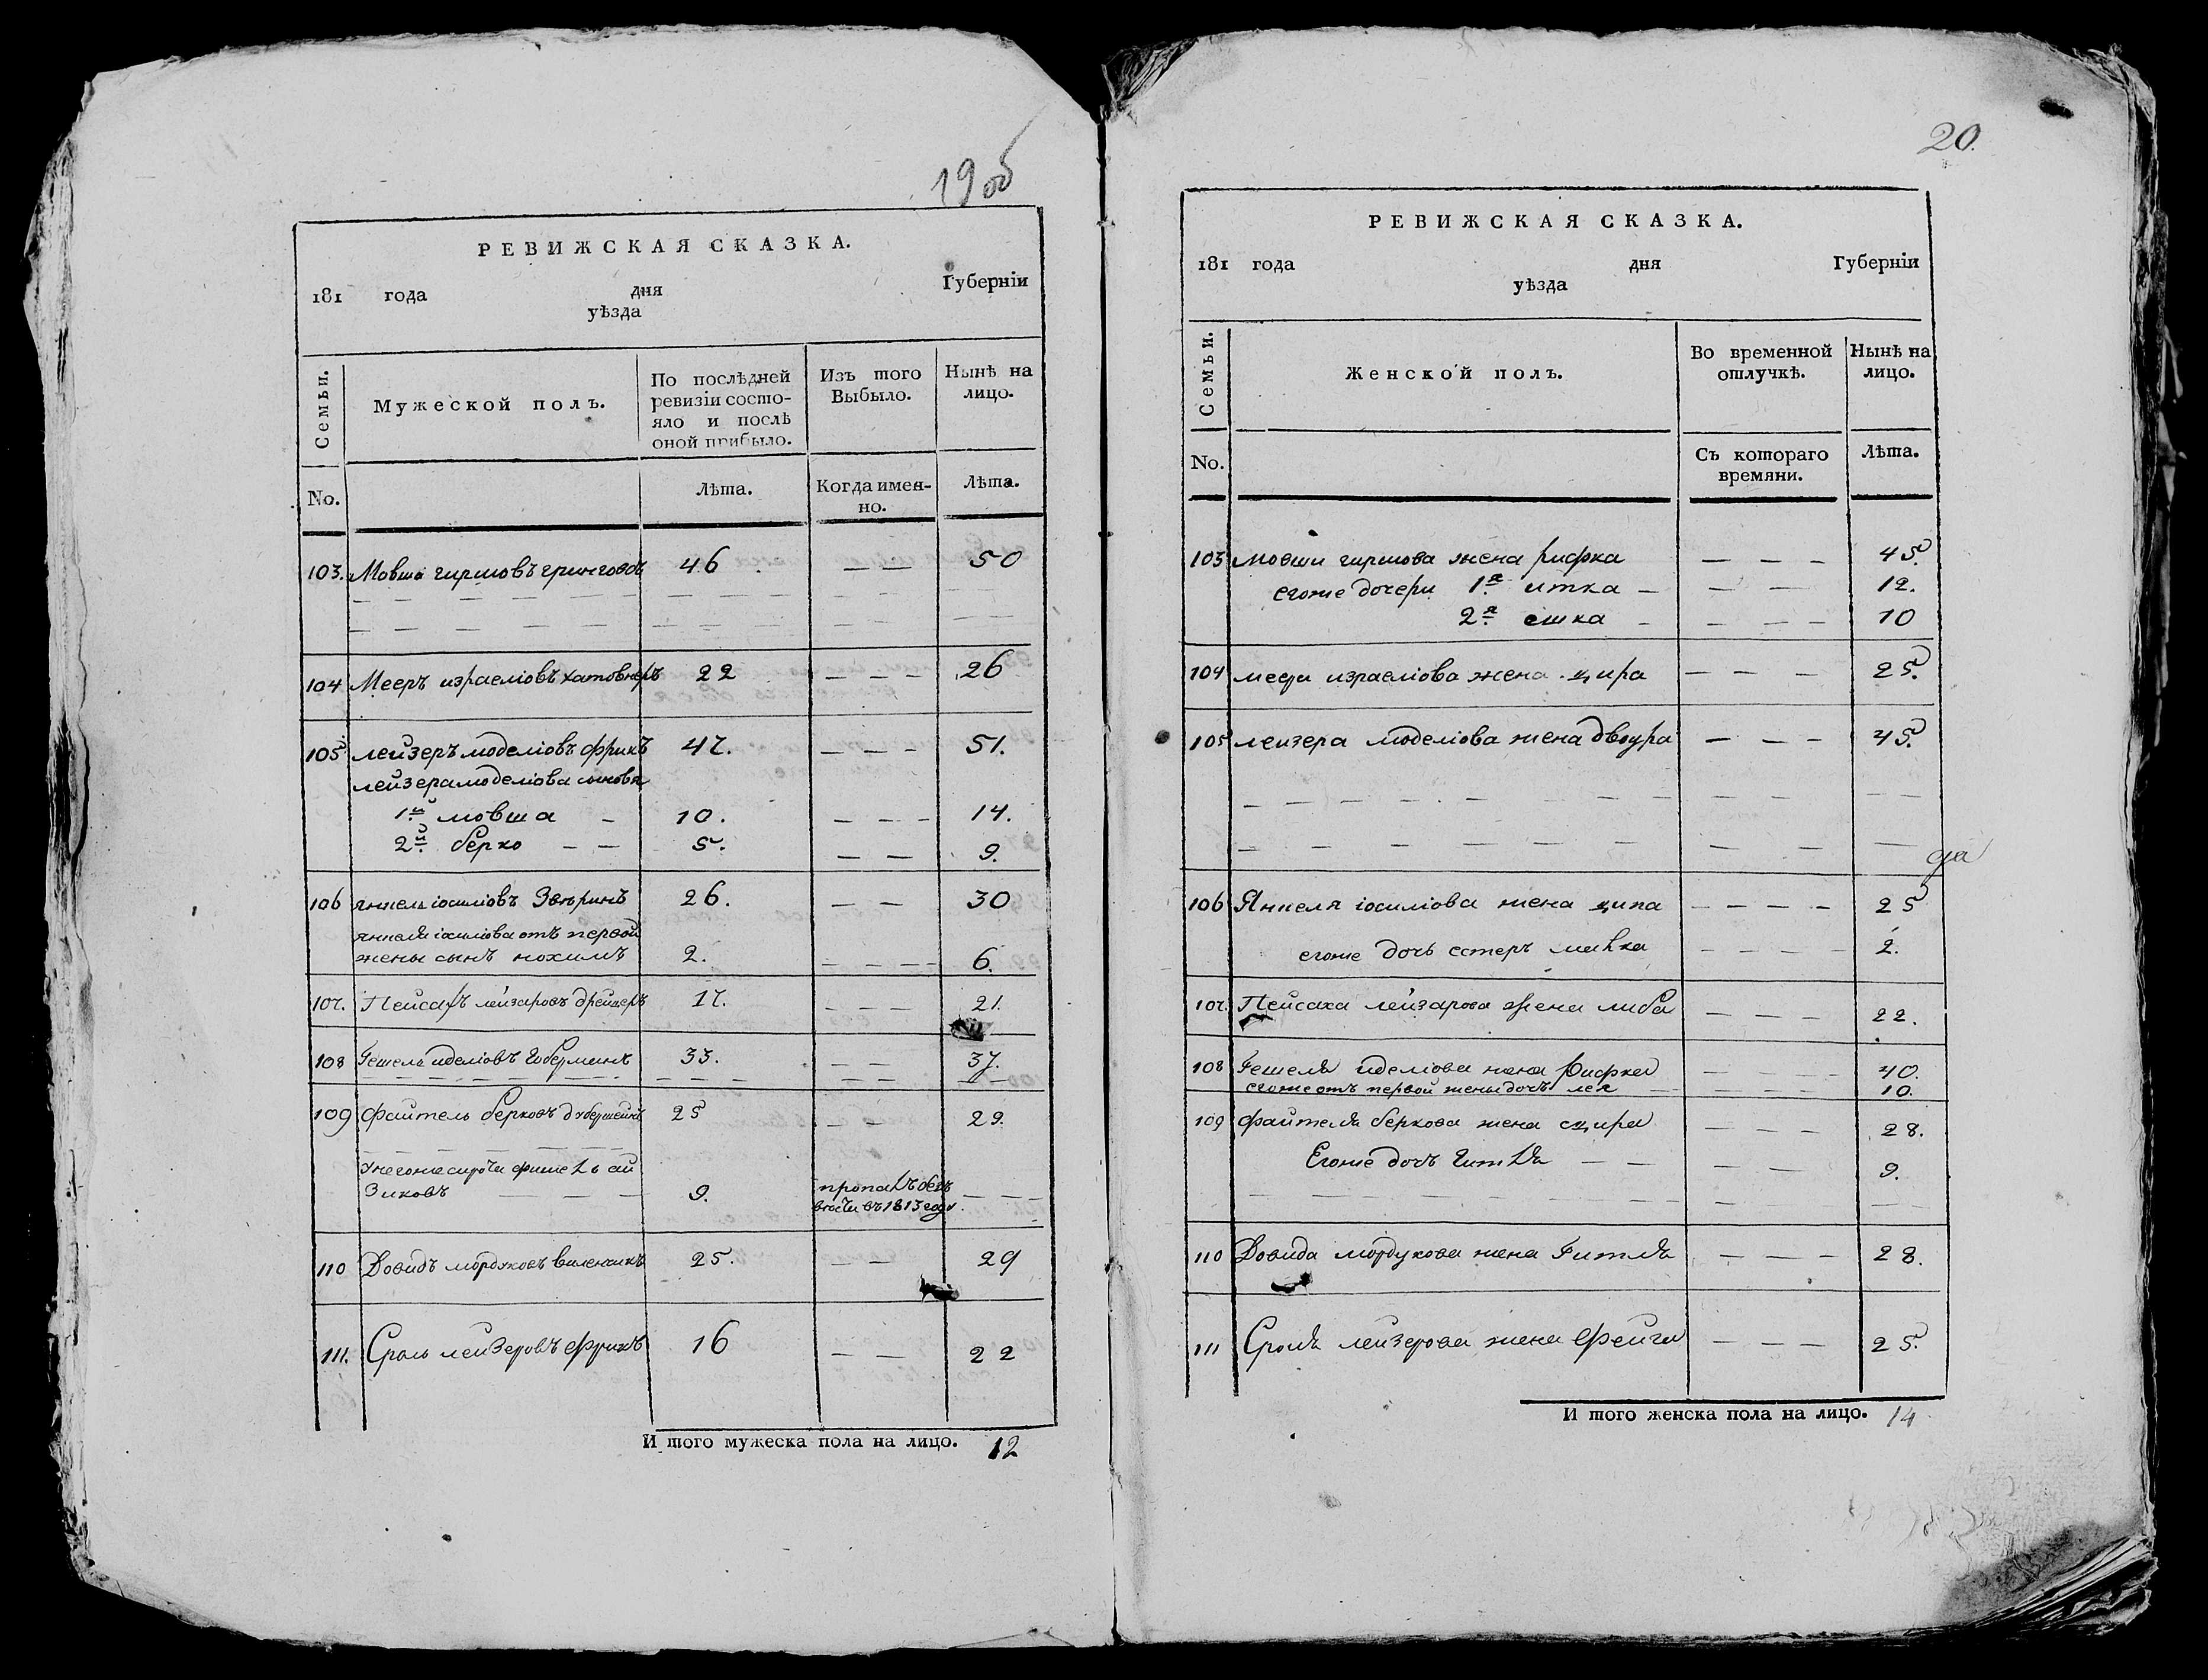 19об
РЕВИЖСКАЯ СКАЗКА.
181 года дня Губерніи
уѣзда
Семьи.
Мужеской полъ.
По послѣдней ревизіи состо-
яло и послѣ
оной прибыло.
Изъ того
Выбыло.
Нынѣ на
лицо.
No.
Лѣта.
Когда имен-
но.
Лѣта.
103. Мовша гиршовъ 46 — — 50
104 Мееръ израеліовъ 22 — — — 26
105 лейзеръ моделіовъ фрикъ 47. — — — 51.
лейзера моделіова сыновя
1й мовша — 10. — — — 14.
2й берко — — 5. — — 9.
106 янкель іоселіовъ Звѣринъ 26. — — 30
янкеля іоселіова отъ первой
жены сынъ нохимъ 2. — — — — 6.
107. Пейсахъ лейзаровъ 17. — — — 21.
108 Гешель иделіовъ Губерманъ 33. — — 37.
109 Файтель берковъ 25 — — 29.
У него же сирота фишель ай
зиковъ — — — 9. пропалъ безъ — — —
вѣсти въ 1813 году
110 Довидъ мордуховъ виленчикъ 25. — — 29
111. Сроль лейзеровъ фрикъ 16 — — 22
И того мужеска пола на лицо. 12
20.
РЕВИЖСКАЯ СКАЗКА.
181 года дня Губерніи
уѣзда
Семьи.
Женской полъ.
Во временной
отлучкѣ.
Нынѣ на
лицо.
No.
Съ котораго
времяни.
Лѣта.
103 мовши гиршова жена рифка — — — 45.
егоже дочери 1я итка — — — 12.
2я ешка — — — — 10
104 меера израеліова жена цира — — — 25.
105 лейзера моделіова жена двоура — — — 45.
106 Янкеля іоселіова жена ципа — — — — 25
егоже дочь естеръ малка — — — — 2.
107. Пейсаха лейзарова жена либа — — — 22.
108 Гешеля иделіова жена рифка 40.
егоже отъ первой жены дочъ лея — — — 10.
109 Файтеля беркова жена сцира — — — 28.
Егоже дочъ Гитля — — — — 9.
110 Довида мордухова жена Гитля — — — 28.
111 Сроля лейзерова жена Фейга — — — 25.
И того женска пола на лицо. 14